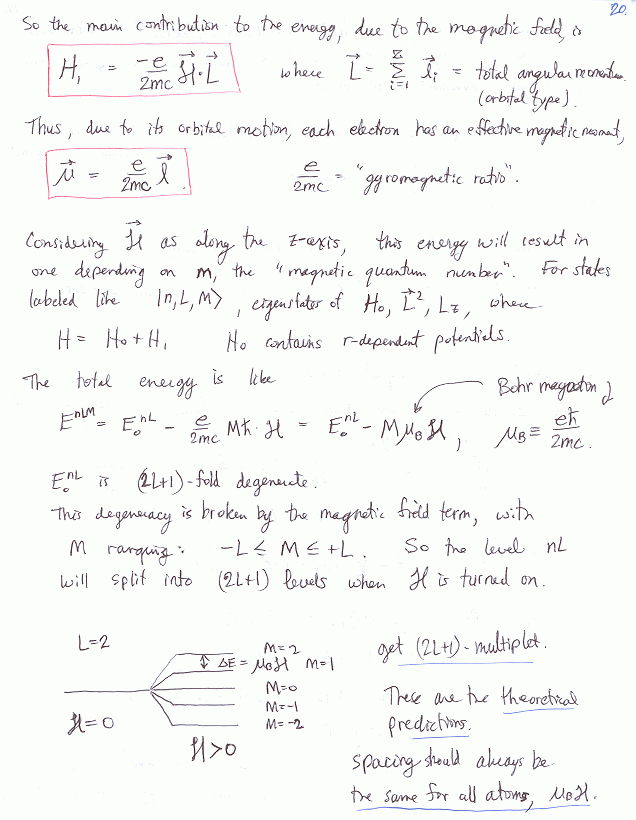 20.
So the main contribution to the energy, due to the magnetic field, is
H₁ = -e/2mc ℋ⃗·L⃗ where L⃗ = Σ_{i=1}^{Z} l⃗ᵢ = total angular momentum
(orbital type).
Thus, due to its orbital motion, each electron has an effective magnetic moment,
μ⃗ = e/2mc l⃗. e/2mc = "gyromagnetic ratio".
Considering ℋ⃗ as along the z-axis, this energy will result in
one depending on m, the "magnetic quantum number". For states
labeled like |n,L,M⟩, eigenstates of H₀, L⃗², L_z, where
H = H₀ + H₁ H₀ contains r-dependent potentials.
The total energy is like
Bohr magneton
E^{nLM} = E₀^{nL} - e/2mc Mħ·ℋ = E₀^{nL} - Mμ_Bℋ, μ_B ≡ eħ/2mc.
E₀^{nL} is (2L+1)-fold degenerate.
This degeneracy is broken by the magnetic field term, with
M ranging: -L ≤ M ≤ +L. So the level nL
will split into (2L+1) levels when ℋ is turned on.
L=2
M=2
ΔE = μ_Bℋ M=1
M=0
M=-1
M=-2
ℋ=0
ℋ>0
get (2L+1)-multiplet.
These are the theoretical
predictions.
spacing should always be
the same for all atoms, μ_Bℋ.